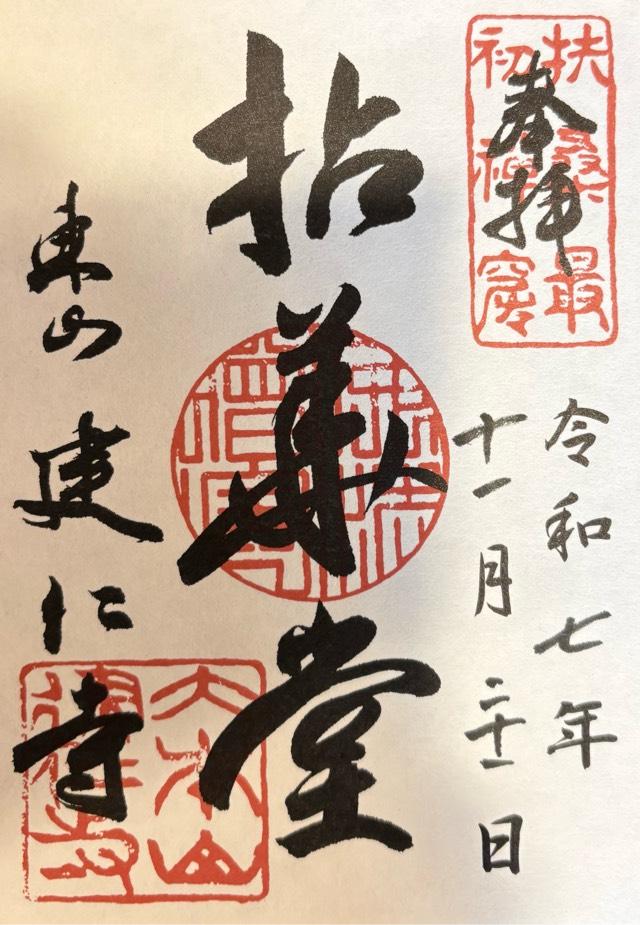 扶桑最
初禪窟
奉拝
令和七年
十一月二十一日
拈華堂
東山 建仁寺
大本山